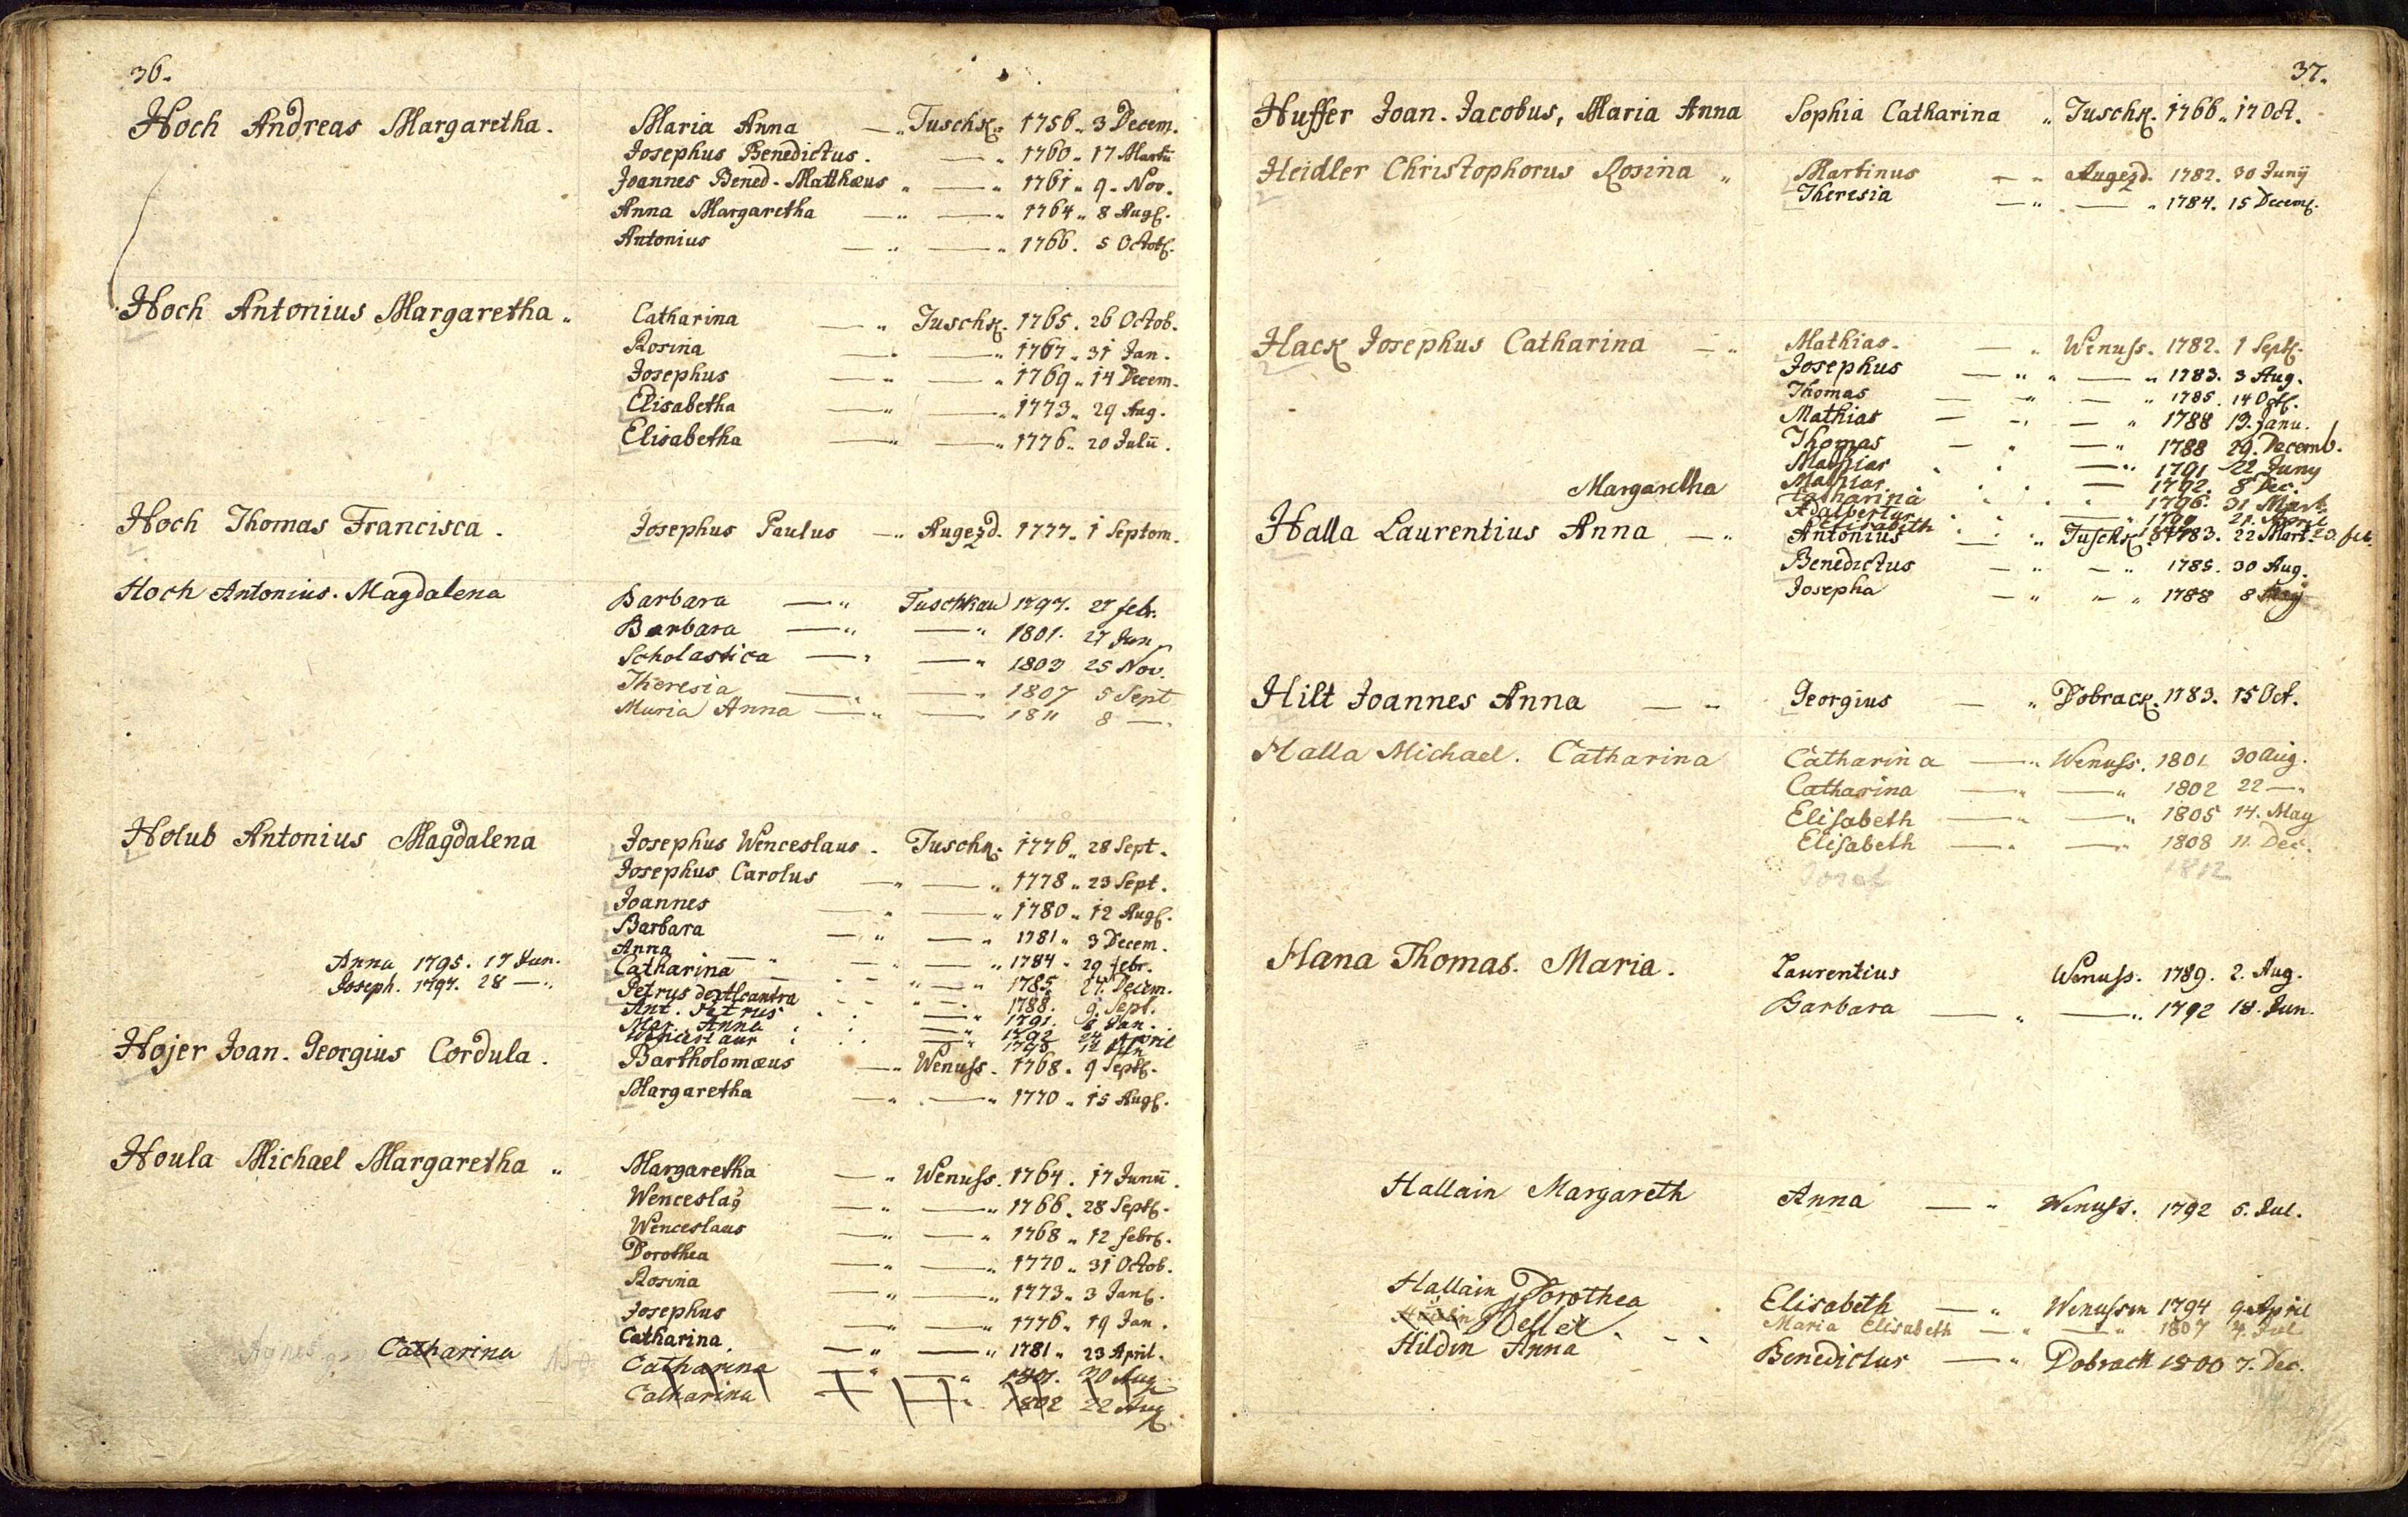 36.
Hoch Andreas Margaretha. Maria Anna —„ Tuschk. 1756„ 3 Decem.
Josephus Benedictus. —„ 1760„ 17 Martii
Joannes Bened. Matthæus „ —„ 1761„ 9. Nov.
Anna Margaretha —„ —„ 1764„ 8 Aug.
Antonius —„ —„ 1766. 5 Octob.
Hoch Antonius Margaretha„ Catharina —„ Tuschk. 1765. 26 Octob.
Rosina —„ —„ 1767„ 31 Jan.
Josephus —„ —„ 1769„ 14 Decem.
Elisabetha —„ —„ 1773„ 29 Aug.
Elisabetha —„ —„ 1776„ 20 Julii.
Hoch Thomas Francisca. Josephus Paulus —„ Augezd. 1777„ 1 Septem.
Hoch Antonius. Magdalena Barbara —„ Tuschkau 1797. 27 febr.
Barbara —„ —„ 1801. 27 Jun
Scholastica —„ —„ 1803 25 Nov.
Theresia —„ —„ 1807 5 Sept
Maria Anna —„ — 1811 8 —„
Holub Antonius Magdalena Josephus Wenceslaus. Tuschk. 1776„ 28 Sept.
Josephus Carolus —„ —„ 1778„ 23 Sept.
Joannes —„ —„ 1780„ 12 Aug.
Barbara —„ —„ 1781„ 3 Decem.
Anna —„ —„ —„ 1784„ 29 febr.
Anna 1795. 17 Jun. Catharina — —„ —„ 1785 27. Decem.
Joseph. 1797. 28 —„ Petrus —„ 1788. 9. Sept.
Ant. Petrus —„ 1791. 8 Jan.
Mar. Anna —„ 1792 24 April
Wenceslaus —„ 1795 12
Hojer Joan. Georgius Cordula. Bartholomæus —„ Wenuss. 1768. 9 Septb.
Margaretha —„ —„ 1770„ 15 Aug.
Houla Michael Margaretha „ Margaretha —„ Wenuss. 1764. 17 Junii.
Wenceslaꝰ —„ —„ 1766„ 28 Septb.
Wenceslaus —„ —„ 1768„ 12 febr.
Dorothea —„ —„ 1770„ 31 Octob.
Rosina —„ —„ 1773„ 3 Jan.
Josephus —„ —„ 1776„ 19 Jan.
Catharina —„ —„ 1781„ 23 April.
Agnes Catharina Catharina —„ —„ 1801. 20 Aug
Catharina — —„ 1802 22 Aug
37.
Huffer Joan. Jacobus, Maria Anna Sophia Catharina „ Tuschk. 1766„ 17 Oct.
Heidler Christophorus Rosina „ Martinus —„ Augezd. 1782. 30 Junij
Theresia —„ —„ 1784. 15 Decemb.
Hack Josephus Catharina —„ Mathias. —„ Wenuss. 1782. 1 Septb.
Josephus —„ „ —„ 1783. 3 Aug.
Thomas —„ —„ 1785. 14 Oct.
Mathias —„ —„ 1788 13. Janu.
Thomas —„ —„ 1788 29. Decemb.
Mathias —„ 1791 22 Juny
Mathias — 1792 8 Dec.
Catharina „ 1796. 31 Mart.
Adalbertus —„ 1799 21. April
Elisabeth 23. feb.
Margaretha
Halla Laurentius Anna —„ Antonius —„ Tuschk. 1783. 22 Mart.
Benedictus —„ —„ 1785. 30 Aug.
Josepha —„ —„ 1788 8 May
Hilt Joannes Anna —„ Georgius —„ Dobrack. 1783. 15 Oct.
Halla Michael. Catharina Catharina —„ Wenuss. 1801 30 Aug.
Catharina —„ —„ 1802 22 —„
Elisabeth —„ —„ 1805 14. May
Elisabeth —„ —„ 1808 11. Dec.
Josef 1812
Hana Thomas. Maria. Laurentius Wenuss. 1789. 2. Aug.
Barbara —„ —„ 1792 18. Jun.
Hallain Margareth Anna —„ Wenuss. 1792 5. Jul.
Hallain Dorothea Elisabeth —„ Wenussn 1794 9. April
Maria Elisabeth —„ —„ 1807 4. Jul
Hildin Anna Benedictus —„ Dobrack 1800 7. Dec.